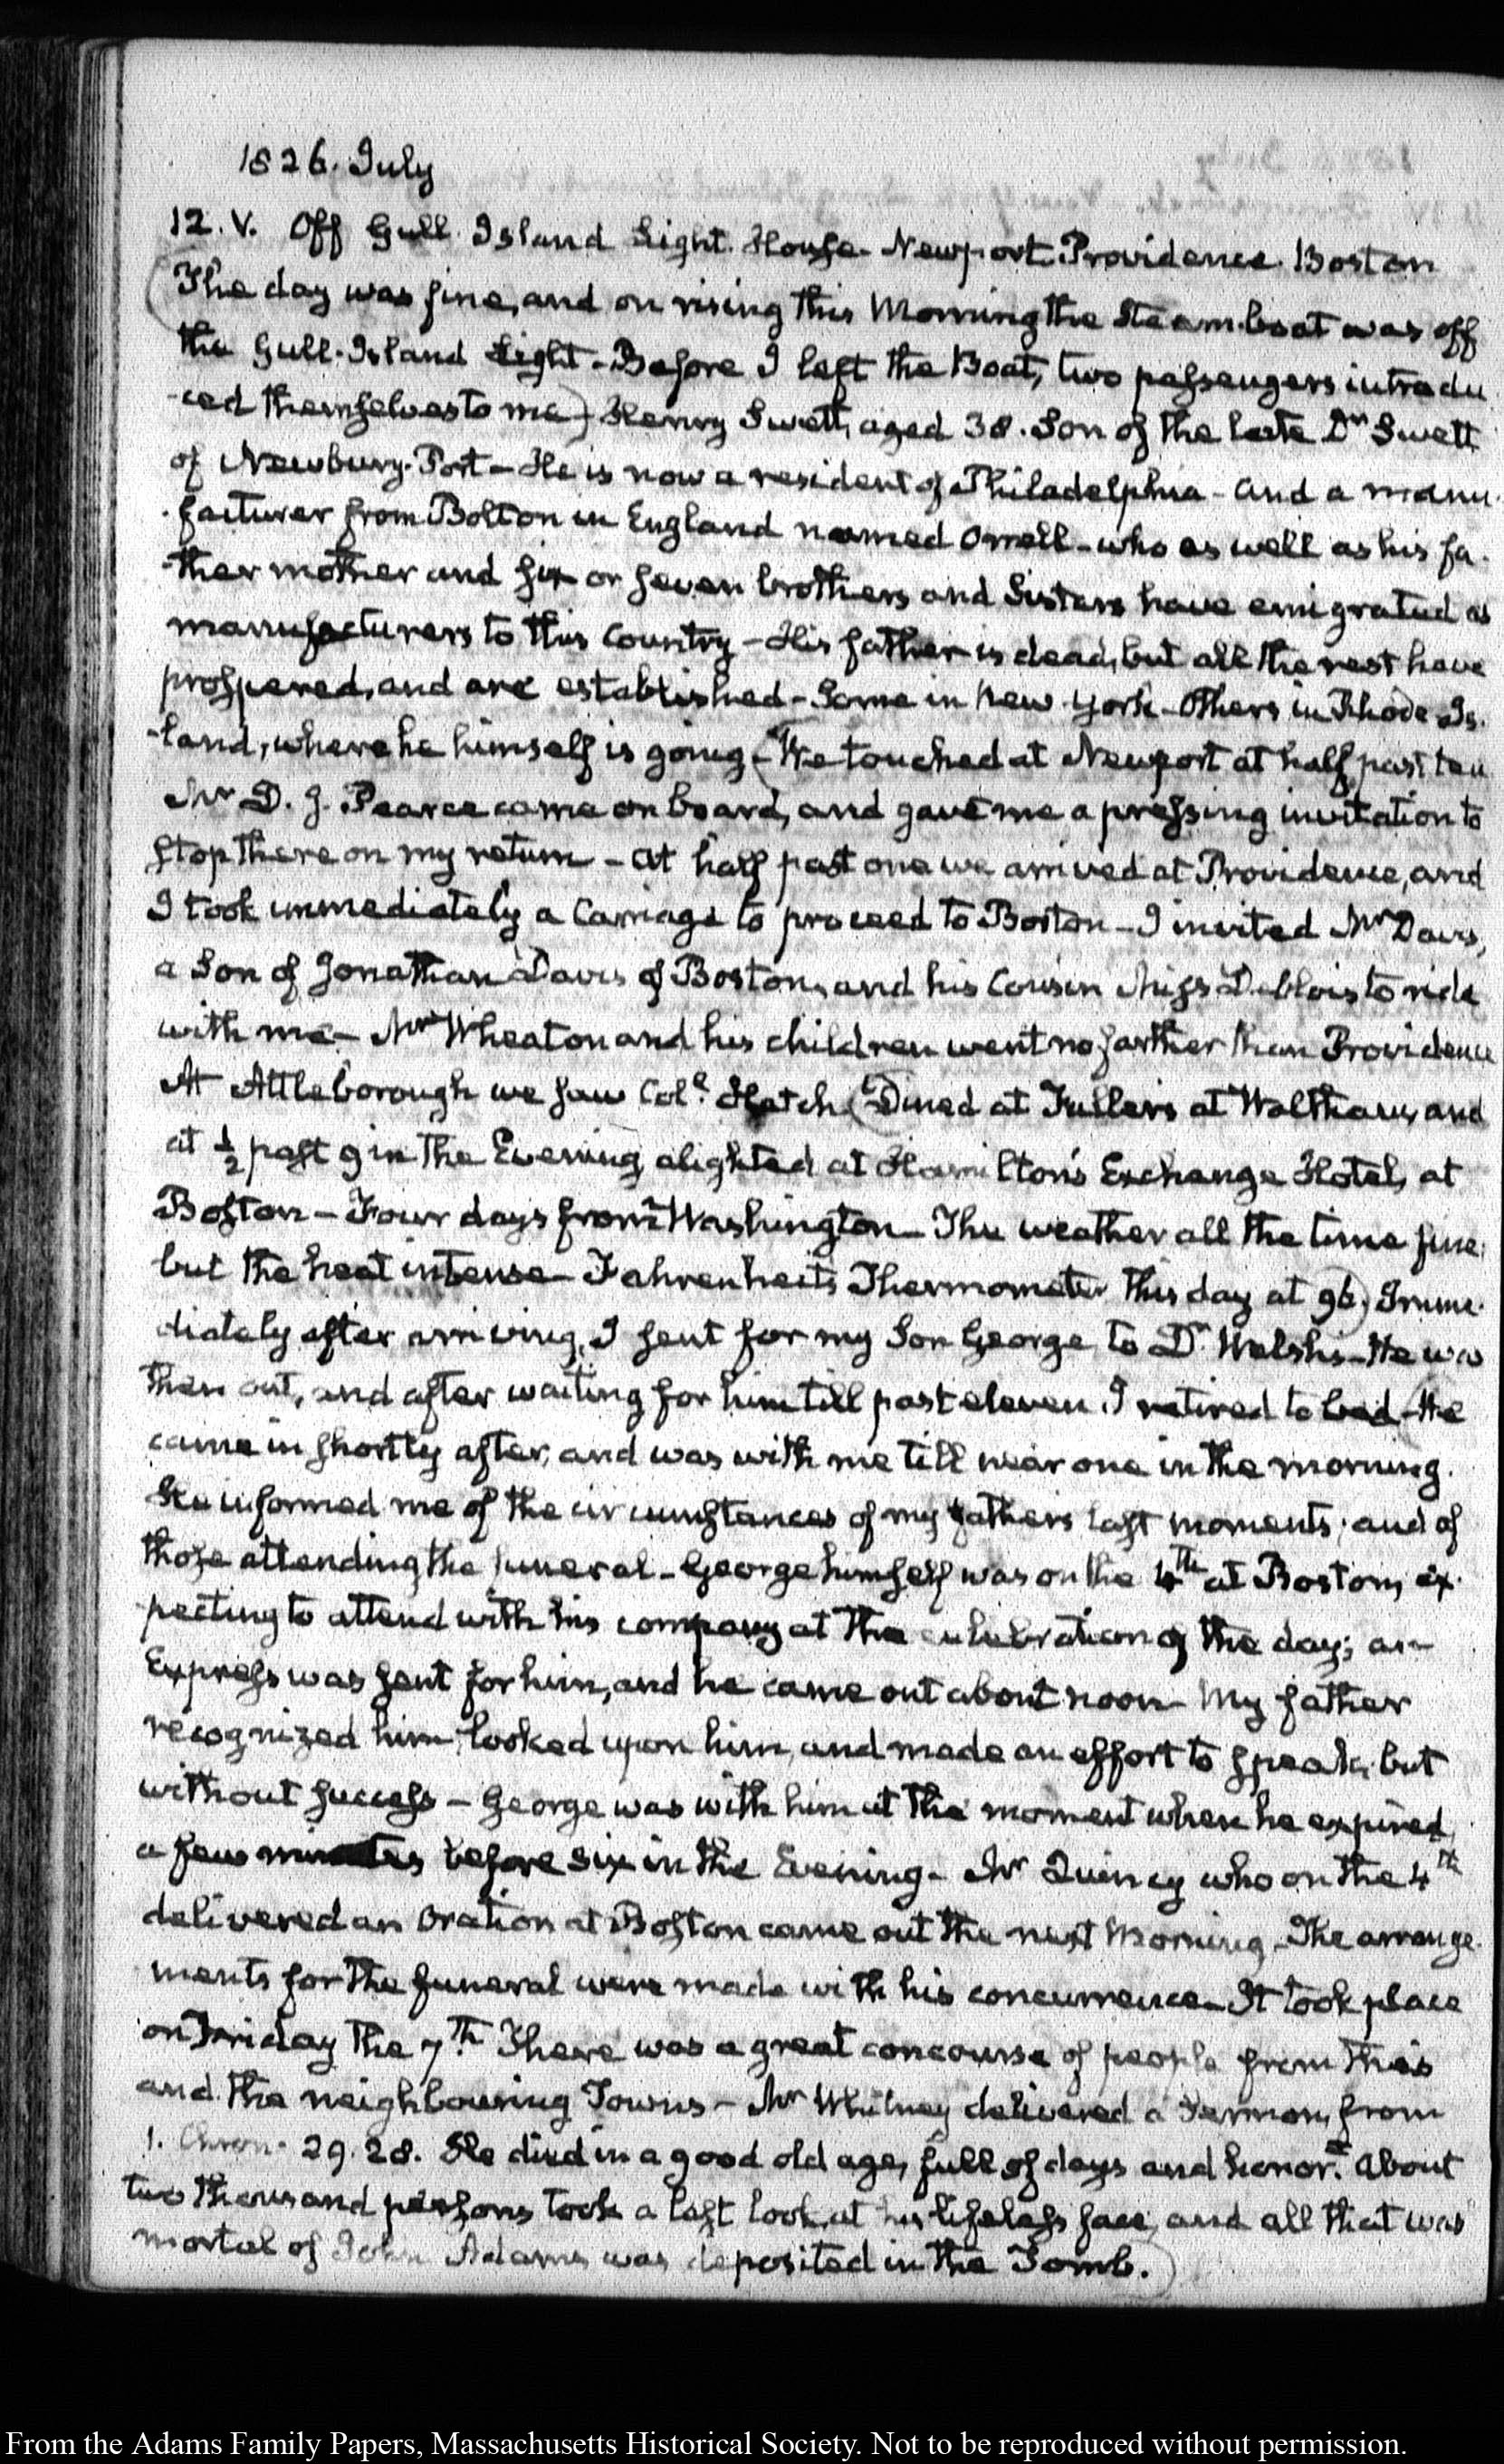 1826. July
12. V. Off Gull Island Light House. Newport. Providence. Boston
(The day was fine, and on rising this Morning the Steam-boat was off
the Gull-Island Light - Before I left the Boat, two passengers introdu
-ced themselves to me) Henry Swett, aged 38. Son of the late Dr Swett
of Newbury-Port - He is now a resident of Philadelphia - and a manu-
-facturer from Bolton in England named Orrell - who as well as his fa-
-ther mother and six or seven brothers and Sisters have emigrated as
manufacturers to this Country - His father is dead, but all the rest have
prospered, and are established - Some in New-York - Others in Rhode-Is-
-land, where he himself is going - (We touched at Newport at half past ten
Mr D. J. Pearce came on board, and gave me a pressing invitation to
stop there on my return - At half past one we arrived at Providence, and
I took immediately a Carriage to proceed to Boston - I invited Mr Davis,
a Son of Jonathan Davis of Boston, and his Cousin Miss Deblois to ride
with me - Mr Wheaton and his children went no farther than Providence
At Attleborough we saw Coll. Hatch (Dined at Fuller's at Waltham, and
at ½ past 9 in the Evening alighted at Hamilton's Exchange Hotel, at
Boston - Four days from Washington - The weather all the time fine,
but the heat intense - Fahrenheit's Thermometer this day at 96.) Imme-
diately after arriving, I sent for my Son George, to Dr Welsh's - He was
then out, and after waiting for him till past eleven, I retired to bed - (He
came in shortly after, and was with me till near one in the morning.
He informed me of the circumstances of my father's last moments, and of
those attending the funeral - George himself was on the 4th at Boston, ex-
pecting to attend with his company at the celebration of the day; an
Express was sent for him, and he came out about noon - My father
recognized him, looked upon him, and made an effort to speak, but
without success - George was with him at the moment when he expired,
a few minutes before six in the Evening - Mr Quincy who on the 4th
delivered an Oration at Boston came out the next Morning - The arrange-
ments for the funeral were made with his concurrence - It took place
on Friday the 7th. There was a great concourse of people from this
and the neighbouring Towns - Mr Whitney delivered a Sermon, from
1. Chron. 29. 28. He died in a good old age, full of days and honor." About
two thousand persons took a last look at his lifeless face, and all that was
mortal of John Adams was deposited in the Tomb.)
From the Adams Family Papers, Massachusetts Historical Society. Not to be reproduced without permission.